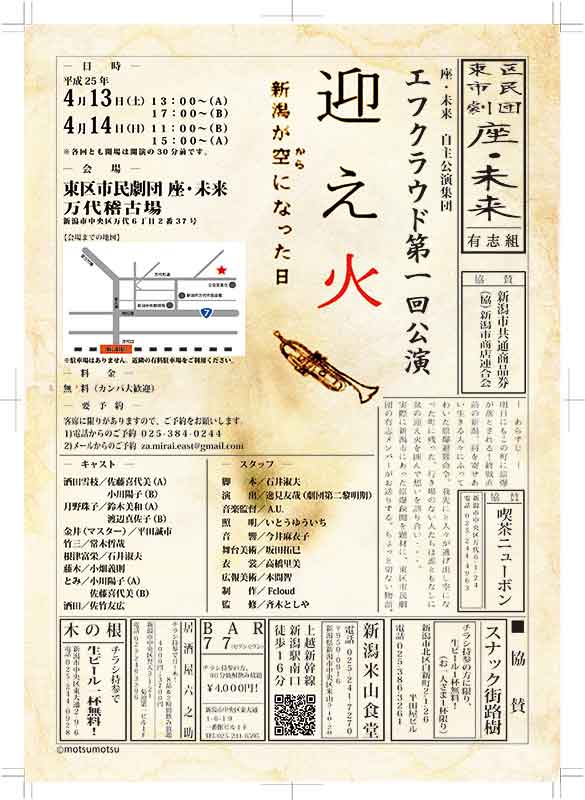 東区市民劇団
座・未来
有志組
座・未来 自主公演集団
エフクラウド第一回公演
迎え火
新潟が空になった日
から
― 日 時 ―
平成25年
4月13日(土) 13:00〜(A)
17:00〜(B)
4月14日(日) 11:00〜(B)
15:00〜(A)
※各回とも開場は開演の30分前です。
― 会 場 ―
東区市民劇団 座・未来
万代稽古場
新潟市中央区万代6丁目2番37号
【会場までの地図】
7
※駐車場はありません。近隣の有料駐車場をご利用ください。
― 料 金 ―
無 料 (カンパ大歓迎)
― 要 予 約 ―
客席に限りがありますので、ご予約をお願いします。
1)電話からのご予約 025-384-0244
2)メールからのご予約 za.mirai.east@gmail.com
― キャスト ―
酒田雪枝/佐藤喜代美(A)
小川陽子(B)
月野珠子/鈴木美和(A)
渡辺真佐子(B)
金井(マスター)/平田誠市
竹三/常木哲哉
根津富栄/石井淑夫
藤木/小畑義則
とみ/小川陽子(A)
佐藤喜代美(B)
酒田/佐竹友広
― スタッフ ―
脚 本/石井淑夫
演 出/逸見友哉(劇団第二黎明期)
音楽監督/A.U.
照 明/いとうゆういち
音 響/今井麻衣子
舞台美術/坂田拓巳
衣 装/高橋里美
広報美術/本間智
制 作/Fcloud
監 修/斉木としや
協 賛
新潟市共通商品券
(協)新潟市商店連合会
― あらすじ ―
協 賛
喫茶ニューボン
新潟市中央区万代6-1-24
電話 025-244-4963
■協 賛
スナック街路樹
チラシ持参の方に限り、
生ビール1杯無料!
(お一人さま1杯限り)
新潟市北区白新町2-1-26
平田屋ビル
電話 025-386-3261
新潟米山食堂
電話 025-241-7270
〒950-0916
上越新幹線
新潟駅南口
徒歩16分
BAR
77
(セブンセブン)
チラシ持参の方、
90分間飲み放題
¥4,000円!
新潟市中央区東大通
1-6-19
一番館ビル1F
居酒屋六之助
木の根
チラシ持参で
生ビール一杯無料!
新潟市中央区東大通2-9-6
電話 025-244-0928
©motsumotsu